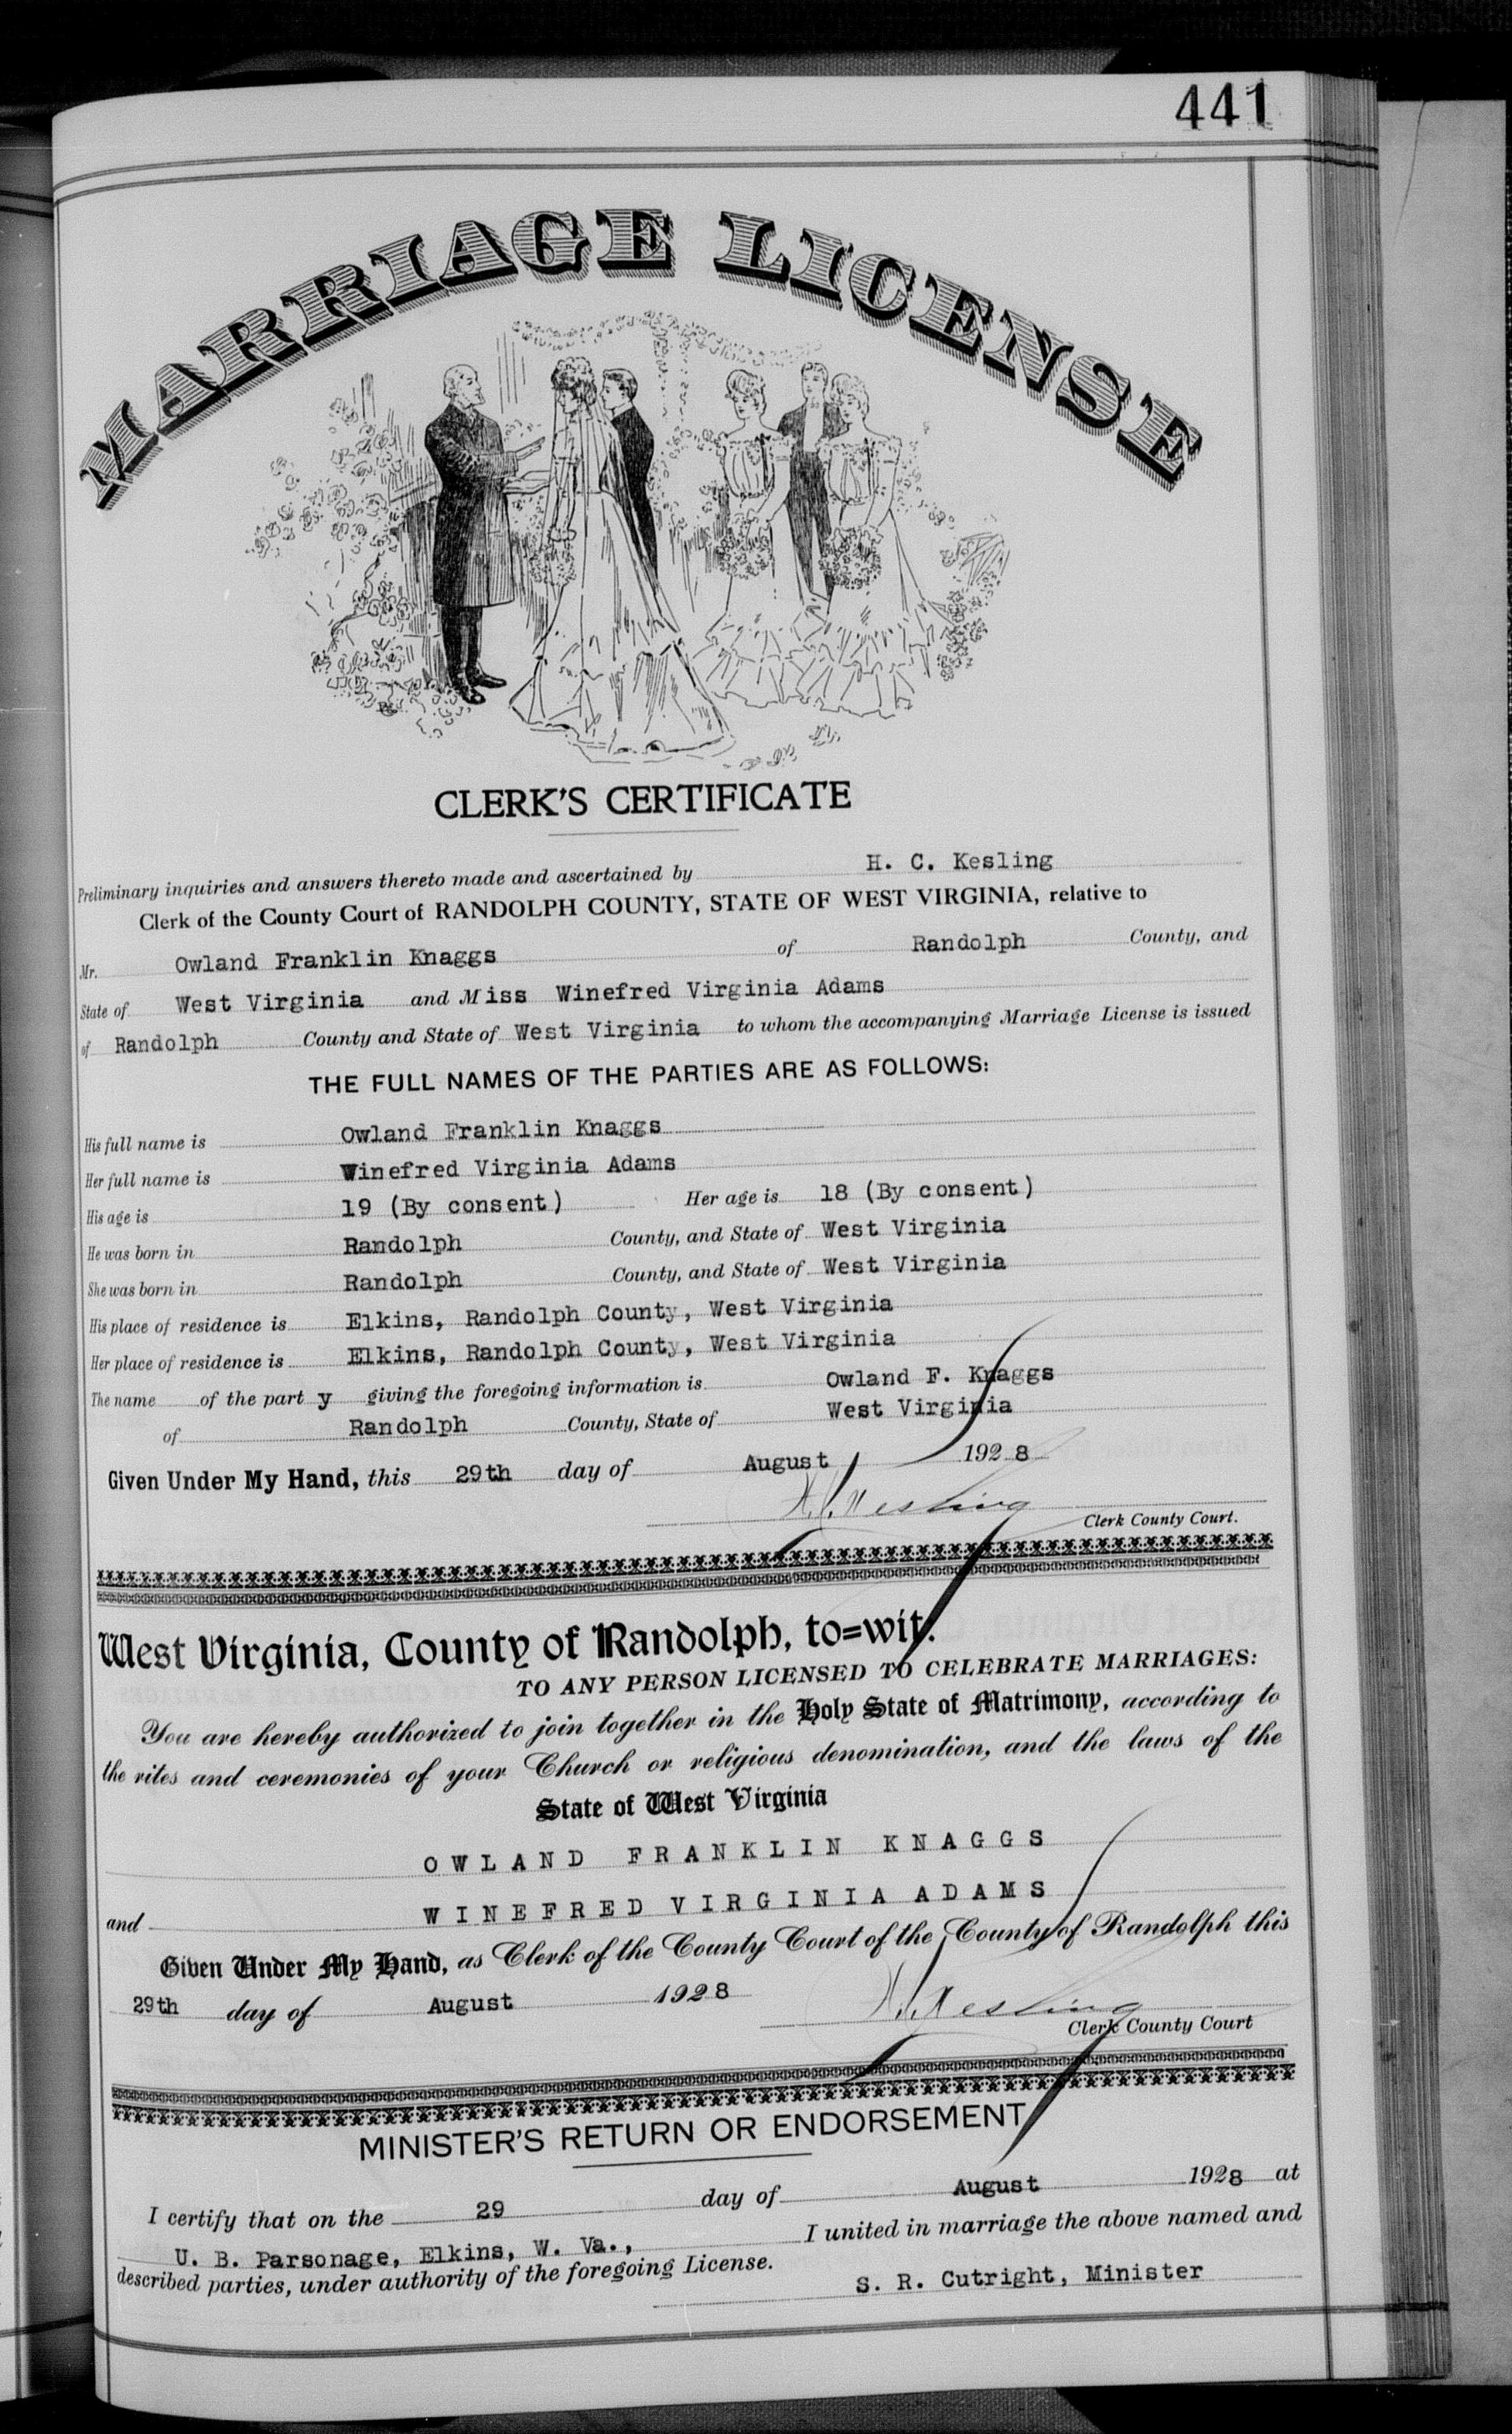 441
MARRIAGE LICENSE
CLERK'S CERTIFICATE
Preliminary inquiries and answers thereto made and ascertained by H. C. Kesling
Clerk of the County Court of RANDOLPH COUNTY, STATE OF WEST VIRGINIA, relative to
Mr. Owland Franklin Knaggs of Randolph County, and
State of West Virginia and Miss Winefred Virginia Adams
of Randolph County and State of West Virginia to whom the accompanying Marriage License is issued
THE FULL NAMES OF THE PARTIES ARE AS FOLLOWS:
His full name is Owland Franklin Knaggs
Her full name is Winefred Virginia Adams
His age is 19 (By consent) Her age is 18 (By consent)
He was born in Randolph County, and State of West Virginia
She was born in Randolph County, and State of West Virginia
His place of residence is Elkins, Randolph County, West Virginia
Her place of residence is Elkins, Randolph County, West Virginia
The name of the part y giving the foregoing information is Owland F. Knaggs
of Randolph County, State of West Virginia
Given Under My Hand, this 29th day of August 1928
H. C. Kesling
Clerk County Court.
West Virginia, County of Randolph, to=wit.
TO ANY PERSON LICENSED TO CELEBRATE MARRIAGES:
You are hereby authorized to join together in the Holy State of Matrimony, according to
the rites and ceremonies of your Church or religious denomination, and the laws of the
State of West Virginia
OWLAND FRANKLIN KNAGGS
and WINEFRED VIRGINIA ADAMS
Given Under My Hand, as Clerk of the County Court of the County of Randolph this
29th day of August 1928
H. C. Kesling
Clerk County Court
MINISTER'S RETURN OR ENDORSEMENT
I certify that on the 29 day of August 1928 at
U. B. Parsonage, Elkins, W. Va., I united in marriage the above named and
described parties, under authority of the foregoing License.
S. R. Cutright, Minister